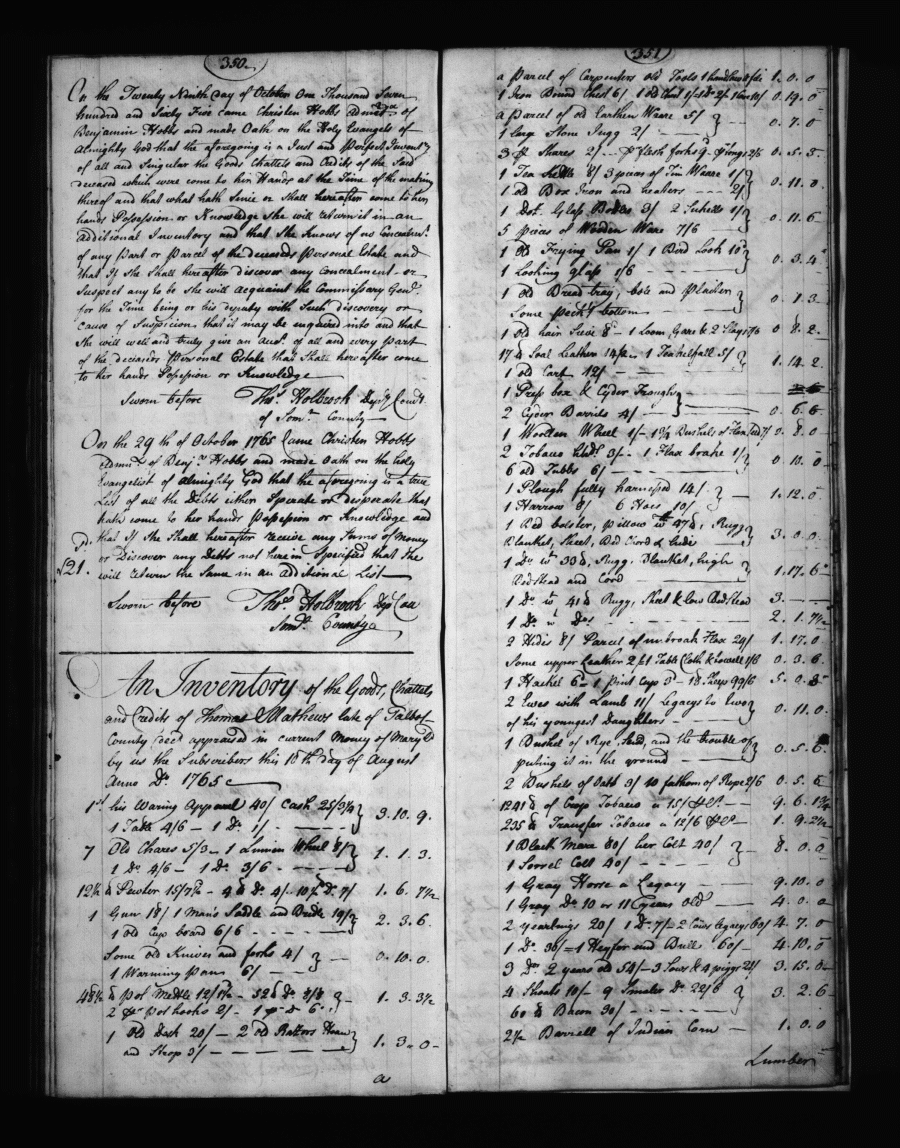 350.
On the Twenty Ninth day of October One Thousand Seven
hundred and Sixty Five came Christen Hobbs Admx. of
Benjamin Hobbs and made Oath on the Holy Evangels of
Almighty God that the aforegoing is a Just and Perfect Inventy.
of all and Singular the Goods Chattels and Credits of the Said
deceased which were come to her Hands at the Time of the making
thereof and that what hath Since or Shall hereafter come to her
hands Possession or Knowledge She will return it in an
additional Inventory and that She Knows of no Concealmt.
of any Part or Parcel of the deceaseds Personal Estate and
that If She Shall hereafter discover any Concealment or
Suspect any to be she will acquaint the Commissary Genl.
for the Time being or his deputy with Such discovery or
cause of Suspicion that it may be enquired into and that
She will well and truly give an Acct. of all and every Part
of the deceaseds Personal Estate that Shall hereafter come
to her hands Possession or Knowledge
Sworn before Thos. Holbrook Depy. Comy.
of Somt. County
On the 29th of October 1765 Came Christen Hobbs
Admx. of Benjn. Hobbs and made Oath on the holy
Evangelist of Almighty God that the aforegoing is a true
List of all the Debts either Sperate or desperate that
hath come to her hands Possession or Knowledge and
that If She Shall hereafter receive any Sums of Money
or Discover any Debts not herein Specified that She
will return the Same in an Additional List
521.
Sworn before Thos. Holbrook Dep Com
Somt. County
An Inventory of the Goods, Chattels
and Credits of Thomas Mathews late of Talbot
County decd. appraised in current Money of Maryld.
by us the Subscribers this 10th day of August
Anno Do. 1765
1st his Waring Apparel 40/ Cash 25/3¼ } 3.10.9.
1 Table 4/6 – 1 Do. 1/
7 Old Chares 5/3 – 1 Linnen Wheel 8/ } 1.1.3.
1 Do. 4/6 – 1 Do. 3/6
12½ lb Pewter 15/7½ – 4 lb Do. 4/ 10 lb Do. 7/ 1.6.7½
1 Gun 18/ 1 Man's Saddle and Bridle 19/ } 2.3.6.
1 old Cup board 6/6
Some old Knives and forks 4/ } 0.10.0.
1 Warming pan 6/
48½ lb Pot Mettle 12/1½ – 52 lb Do. 8/8 } 1.3.3½
2 pr pot hooks 2/ – 1 pr Do 6
1 Old Desk 20/ – 2 old Rattors Hoan } 1.3.0
and Strop 3/
a
351
a Parcel of Carpenters old Tools 1.0.0
1 Iron Bound Chest 6/ 1 Old Chest 1/ 1 Do. 2/ 0.19.0
a Parcel of old Earthen Waare 5/ } 0.7.0
1 large Stone Jugg 2/
3 pr Shares 2/ flesh forks 0.5.3.
1 Tea Kettle 8/ 3 pieces of Tin Waare 1/ } 0.11.0.
1 old Box Iron and heaters 2/
1 Doz. Glass Bottles 3/ 2 1/ } 0.11.6
5 pieces of Wooden Waare 7/6
1 Old Frying Pan 1/ 1 Bird Look 10 } 0.3.4
1 Looking glass 1/6
1 Old Bread tray, bole and Platter } 0.1.3.
Some peckt bottom
1 Old hair Seive 8 – 1 Loom, Gars & 2 Slays 7/6 0.8.2.
17 lb Soal Leather 14/2 5/ } 1.14.2.
1 old Cart 12/
1 Press box & Cyder Troughs }
2 Cyder Barrils 4/ 0.6.6
1 Woollen Wheel 1/ 1¾ Bushels of Flax Seed 7/ 0.8.0
2 Tobaco hhds. 3/ 1 Flax brake 1/ } 0.10.0
6 old Tubbs 6/
1 Plough fully harnessed 14/ } 1.12.0
1 Harrow 8/ 6 Hoes 10/
1 Bed bolster, pillow wt. 47 lb, Rugg } 3.0.0.
Blanket, Sheet, Bed Chord & hide
1 Do. wt. 33 lb, Rugg, Blanket, high } 1.17.6
Bedstead and Cord
1 Do. wt. 41 lb Rugg, Sheet & low Bedstead 3.
1 Do. wt Do. 2.1.7½
2 Hides 8/ Parcel of unbroak Flax 29/ 1.17.0
Some upper Leather 2/ 1 Table Cloth & Towell 1/6 0.3.6.
1 Hackel 6 – 1 pint Cup 3 – 18 Sheep 99/6 5.0.3
2 Ewes with Lamb 11/ Legacys to two } 0.11.0.
of his youngest Daughters
1 Bushel of Rye, Seed, and the trouble of } 0.5.6.
puting it in the ground
2 Bushels of Oats 3/ 40 fathom of Rope 2/6 0.5.6
1241 lb of Crop Tobaco a 15/ 9.6.1¾
235 lb Transfer Tobaco a 12/6 1.9.2½
1 Black Mare 80/ her Colt 40/ } 8.0.0
1 Sorrel Colt 40/
1 Gray Horse a Legacy 9.10.0
1 Gray Do. 10 or 11 Years Old 4.0.0
2 yearlings 20/ 1 Do. 7/ – 2 Cows legacys 60/ 4.7.0
1 Do. 30/ – 1 Heyfer and Bull 60/ 4.10.0
3 Dos. 2 years old 54/ – 3 Sows & 4 piggs 21/ 3.15.0
4 Shoats 10/ – 9 Smaler Do. 22/6 } 3.2.6
60 lb Bacon 30/
2½ Barrell of Indean Corn 1.0.0
Lumber